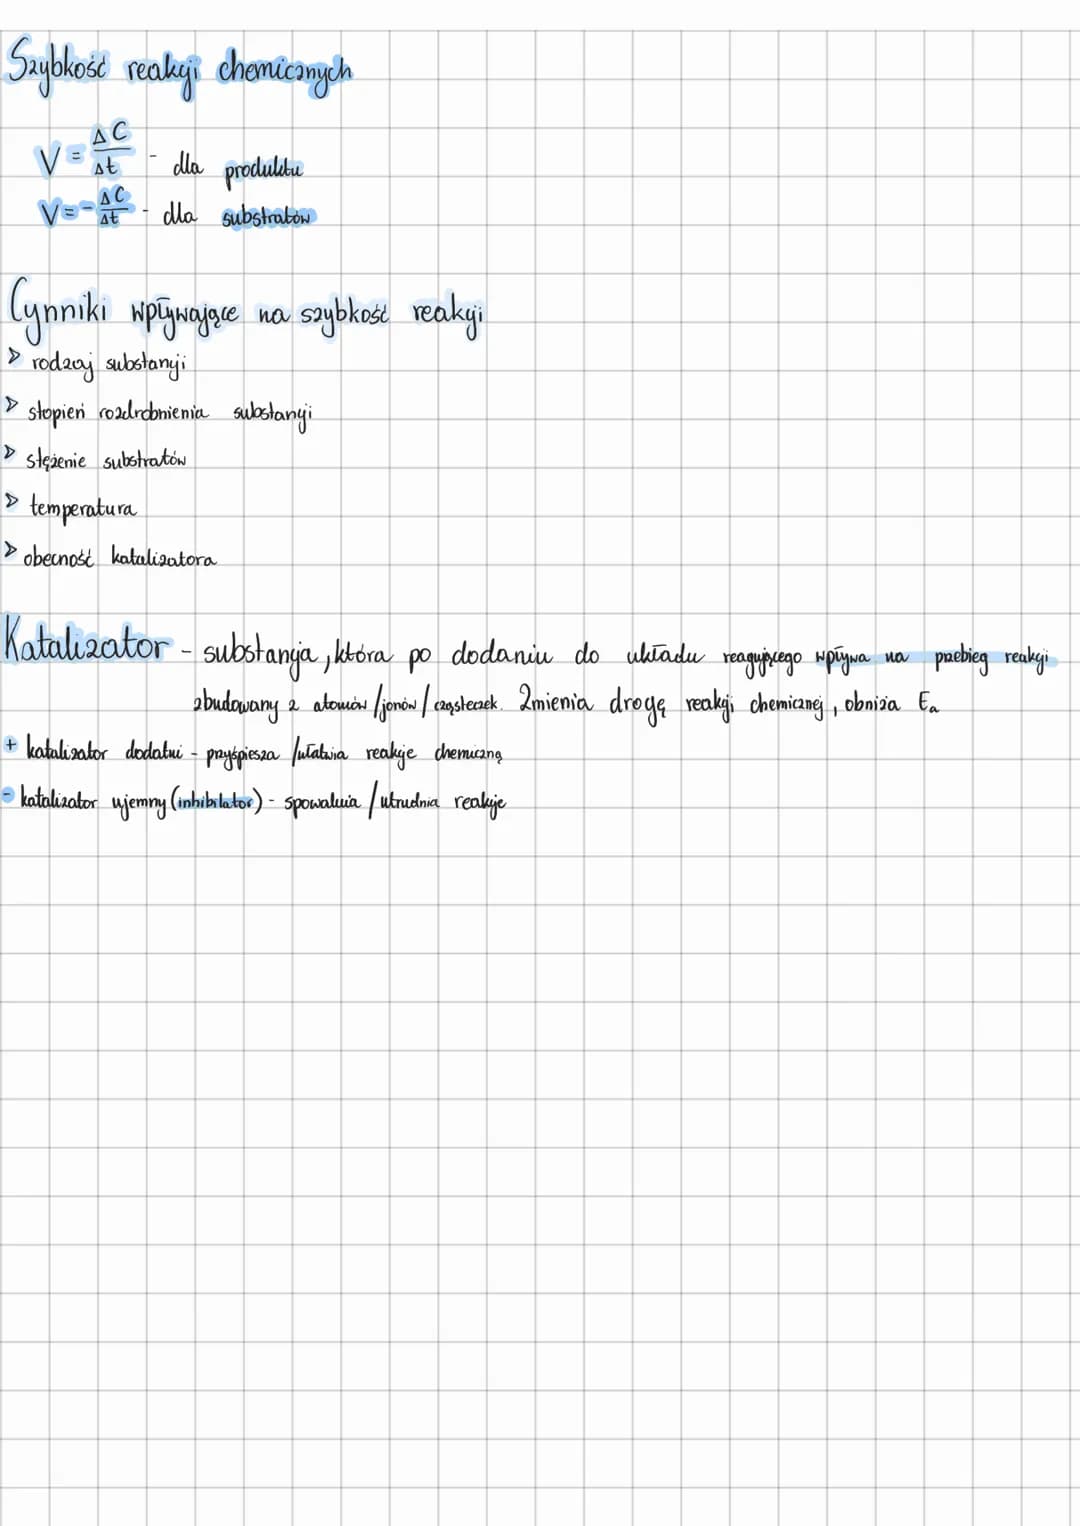 Szybkość reakcji chemicznych
V = ΔC/Δt - dla produktu
V = - ΔC/Δt - dla substratów
Cynniki wpływające na szybkość reakcji
> rodzaj substancji
> stopień rozdrobnienia substancji
> stężenie substratów
> temperatura
> obecność katalizatora
Katalizator - substancja, która po dodaniu do układu reagującego wpływa na przebieg reakcji
zbudowany z atomów /jonów / cząsteczek. Zmienia drogę reakcji chemicznej, obniża Ea
+ katalizator dodatni - przyśpiesza /ułatwia reakcje chemiczną
- katalizator ujemny (inhibilator) - spowalnia / utrudnia reakcje